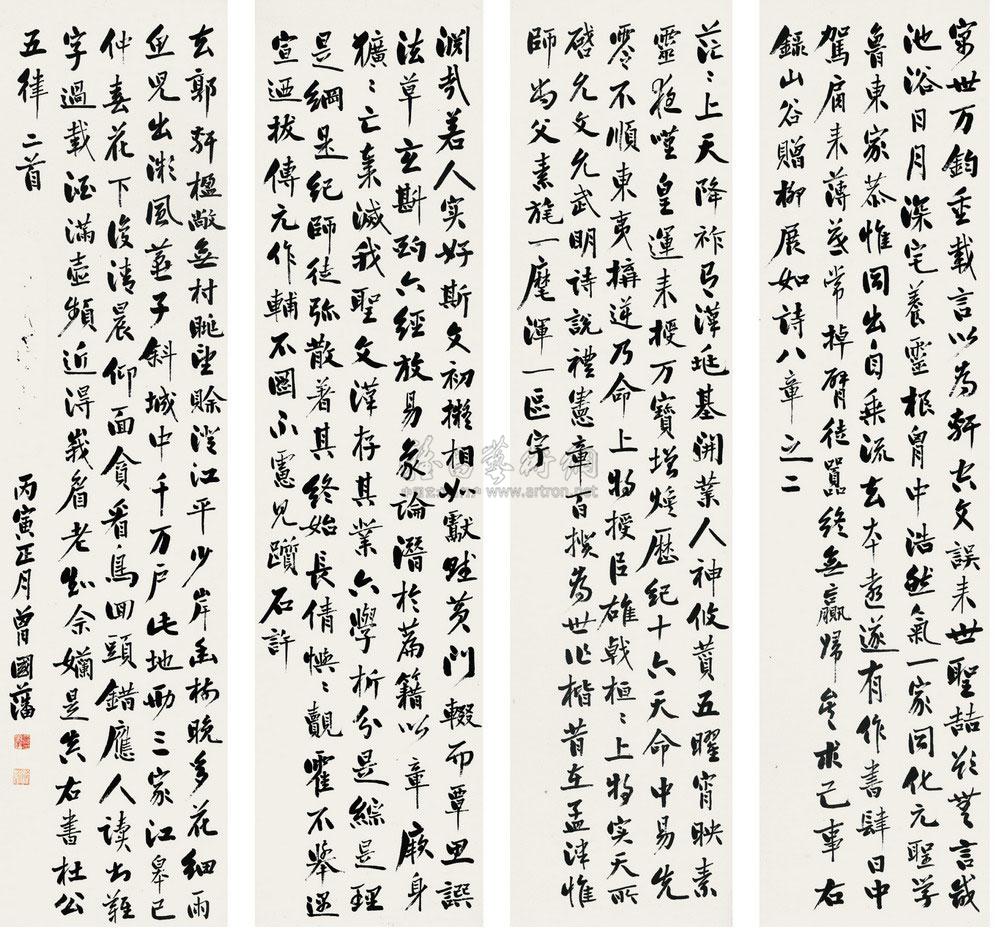 任世万鈞重載言以為軒空文誤来世聖喆欲無言咸
池浴日月深宅養靈根胷中浩然氣一家同化元聖学
魯東家恭惟同出自乘流去本遠遂有作書肆日中
駕肩来薄莫常掉臂徒囂終無贏歸矣求己事 右
録山谷贈柳展如詩八章之二
茫〻上天降祚有漢兆基開業人神攸贊五曜宵映素
靈夜嘆皇運来授万寶增煥歷紀十六天命中易先
零不順東夷遘逆乃命上将授臣雄戟桓〻上将实天所
啓允文允武明詩說禮憲章百揆為世作楷昔在孟津惟
師尚父素旄一麾渾一區宇
淵哉若人实好斯文初擬相如獻賦黄門輟而覃思譔
法草玄斟酌六經放易象論潛於篇籍以章厥身
獷〻亡秦滅我聖文漢存其業六學析分是綜是理
是綱是紀師徒弥散著其終始長倩懊〻覿霍不舉遂
宣迺拔傅元作輔不圖不慮見躓石許
去郭軒楹敞無村眺望賒澄江平少岸幽樹晚多花細雨
魚児出微風燕子斜城中千万戶此地两三家江皋已
仲春花下復清晨仰面貪看鳥回頭錯應人读书難
字過載酒滿壺頻近得峩眉老知余嬾是真右書杜公
五律二首
丙寅正月曾國藩
雅昌藝術網
www.artron.net